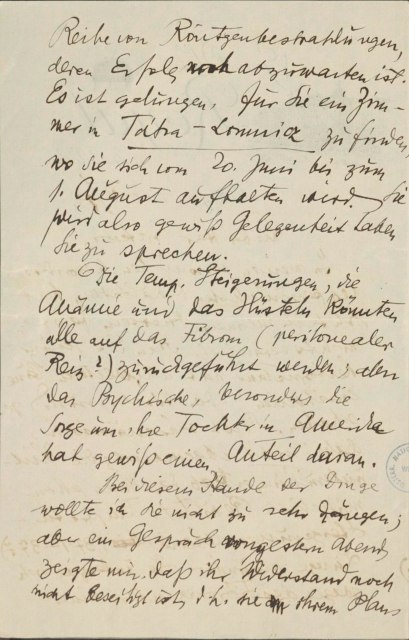 Reihe von Röntgenbestrahlungen,
deren Erfolg noch abzuwarten ist.
Es ist gelungen, für Sie ein Zim-
mer in Tátra-Lomnicz zu finden,
wo sie sich vom 20. Juni bis zum
1. August aufhalten wird. Sie
wird also gewiß Gelegenheit haben
Sie zu sprechen.
Die Temp. Steigerungen, die
Anämie und das Hüsteln könnten
alle auf das Fibrom (peritonealer
Reiz?) zurückgeführt werden; aber
das Psychische, besonders die
Sorge um ihre Tochter in Amerika
hat gewiß einen Anteil daran.
Bei diesem Stande der Dinge
wollte ich sie nicht zu sehr drängen;
aber ein Gespräch vorgestern Abend
zeigte mir, daß ihr Widerstand noch
nicht beseitigt ist, d. h. sie an ihrem Plans